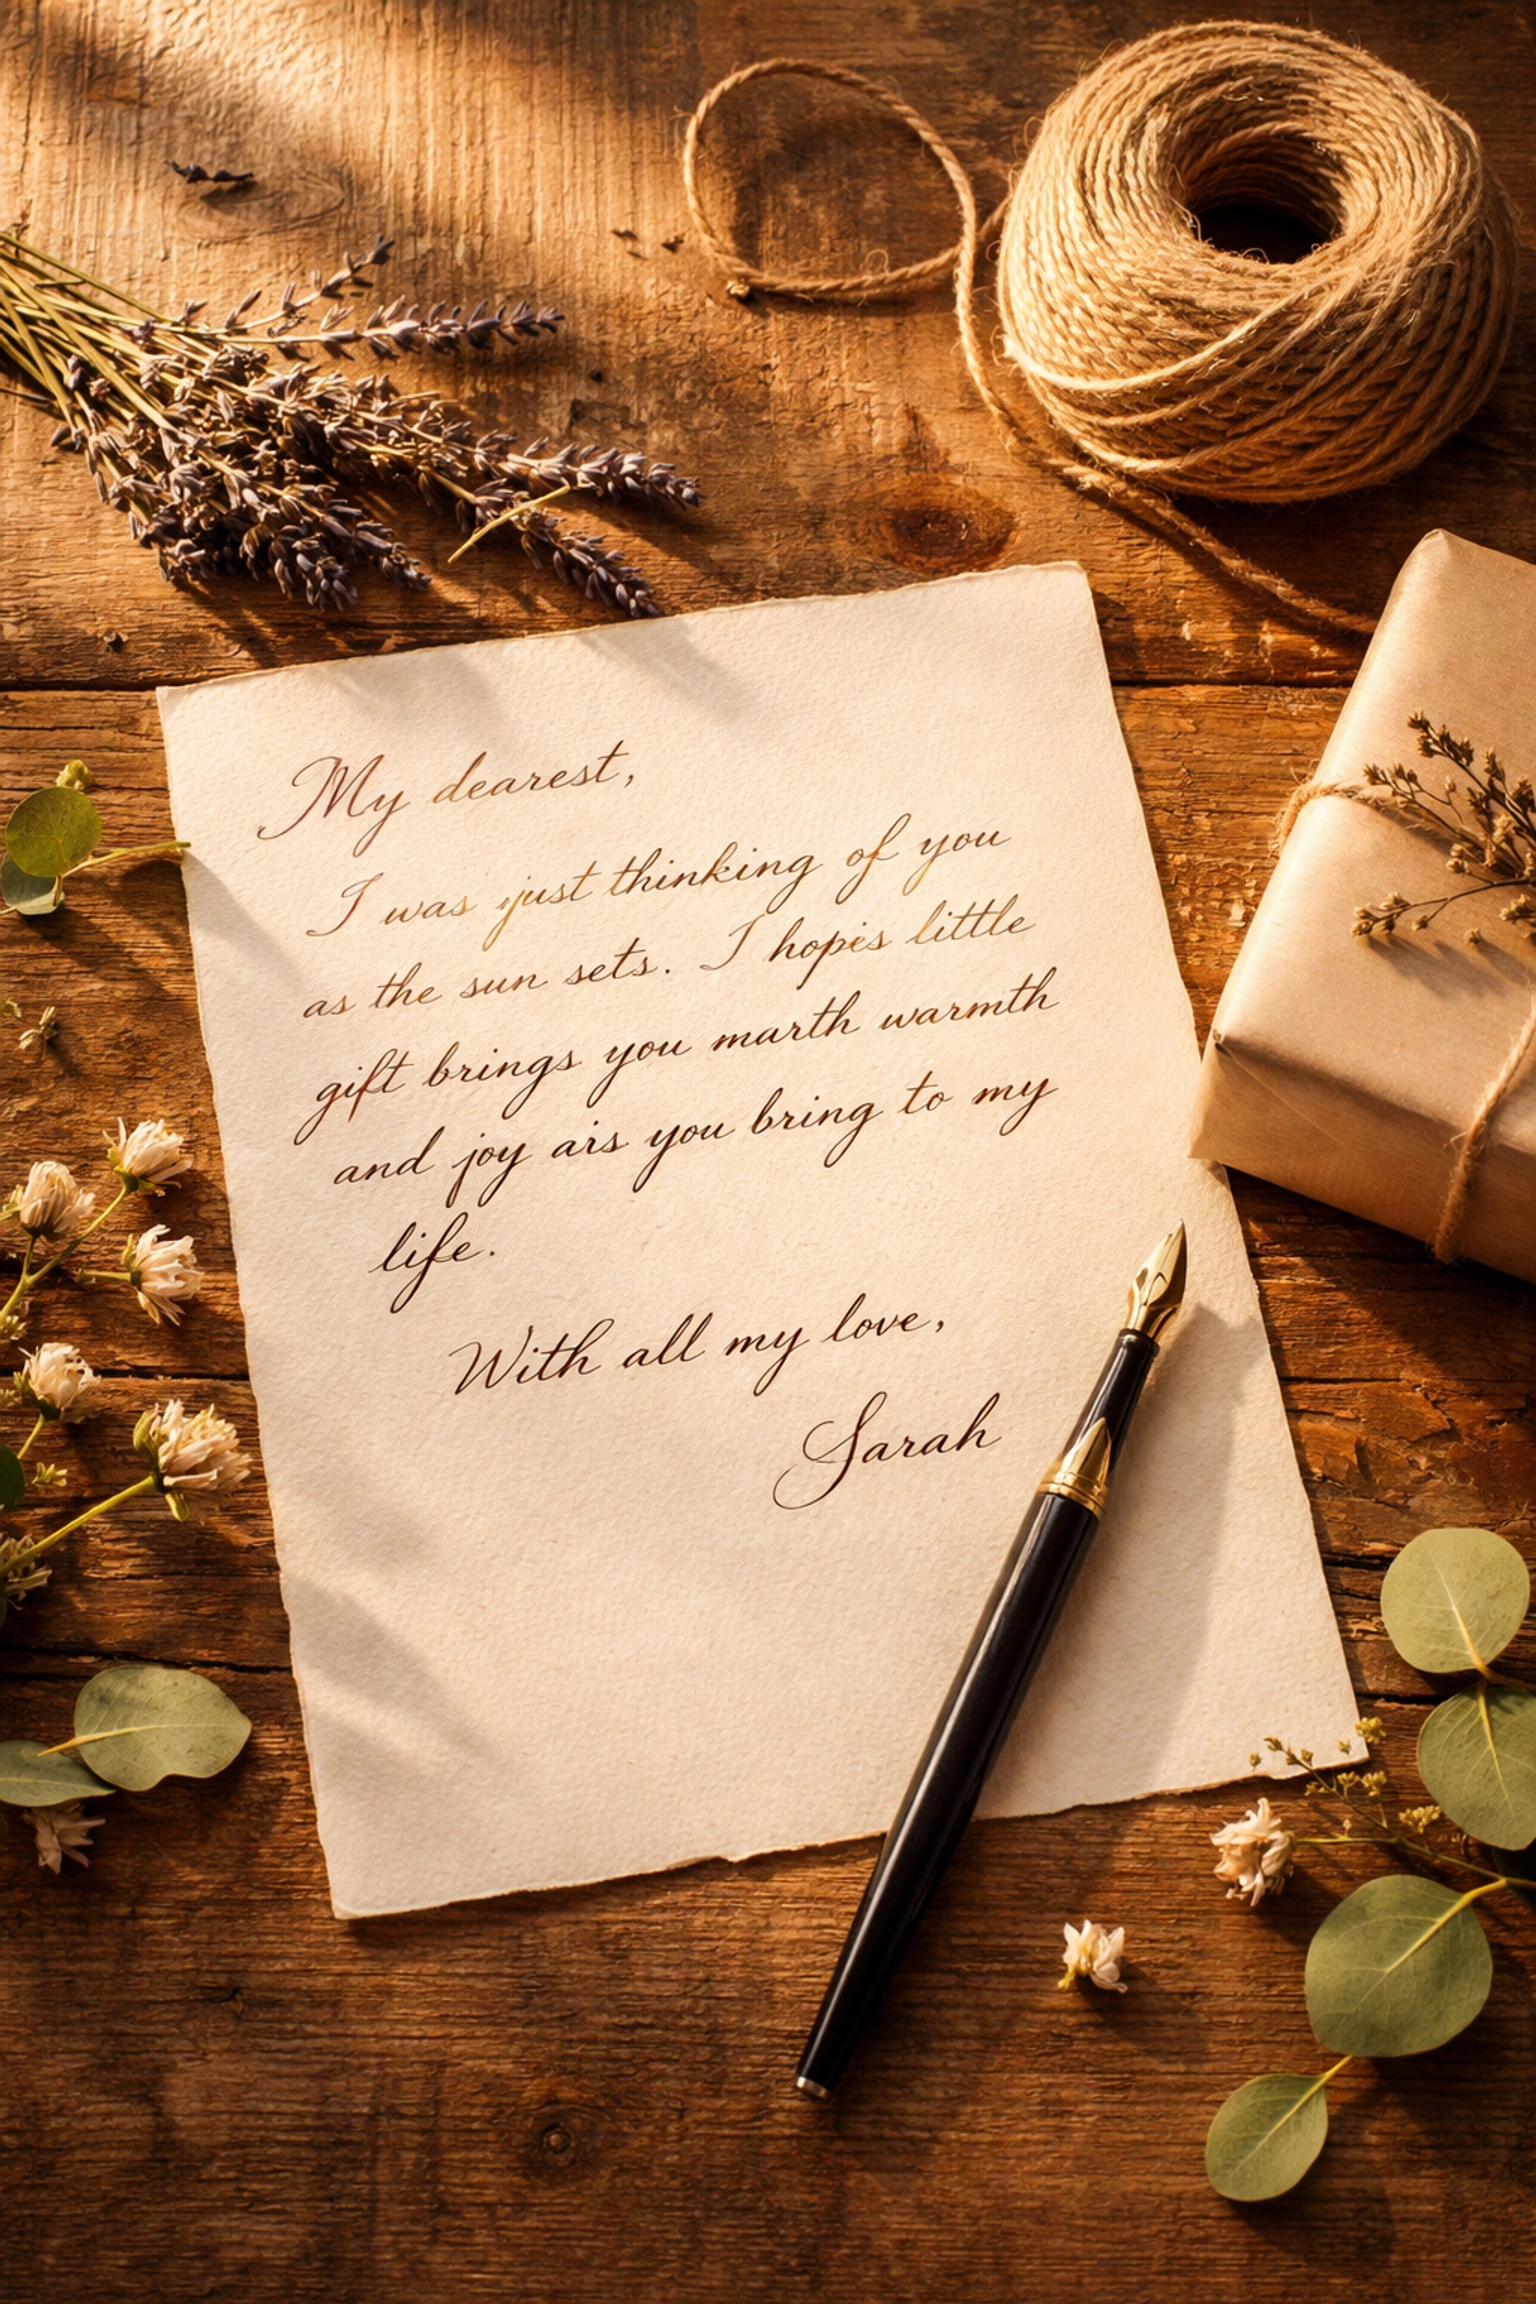 My dearest,
I was just thinking of you
as the sun sets. I hopis little
gift brings you marth warmth
and joy ais you bring to my
life.
With all my love,
Sarah